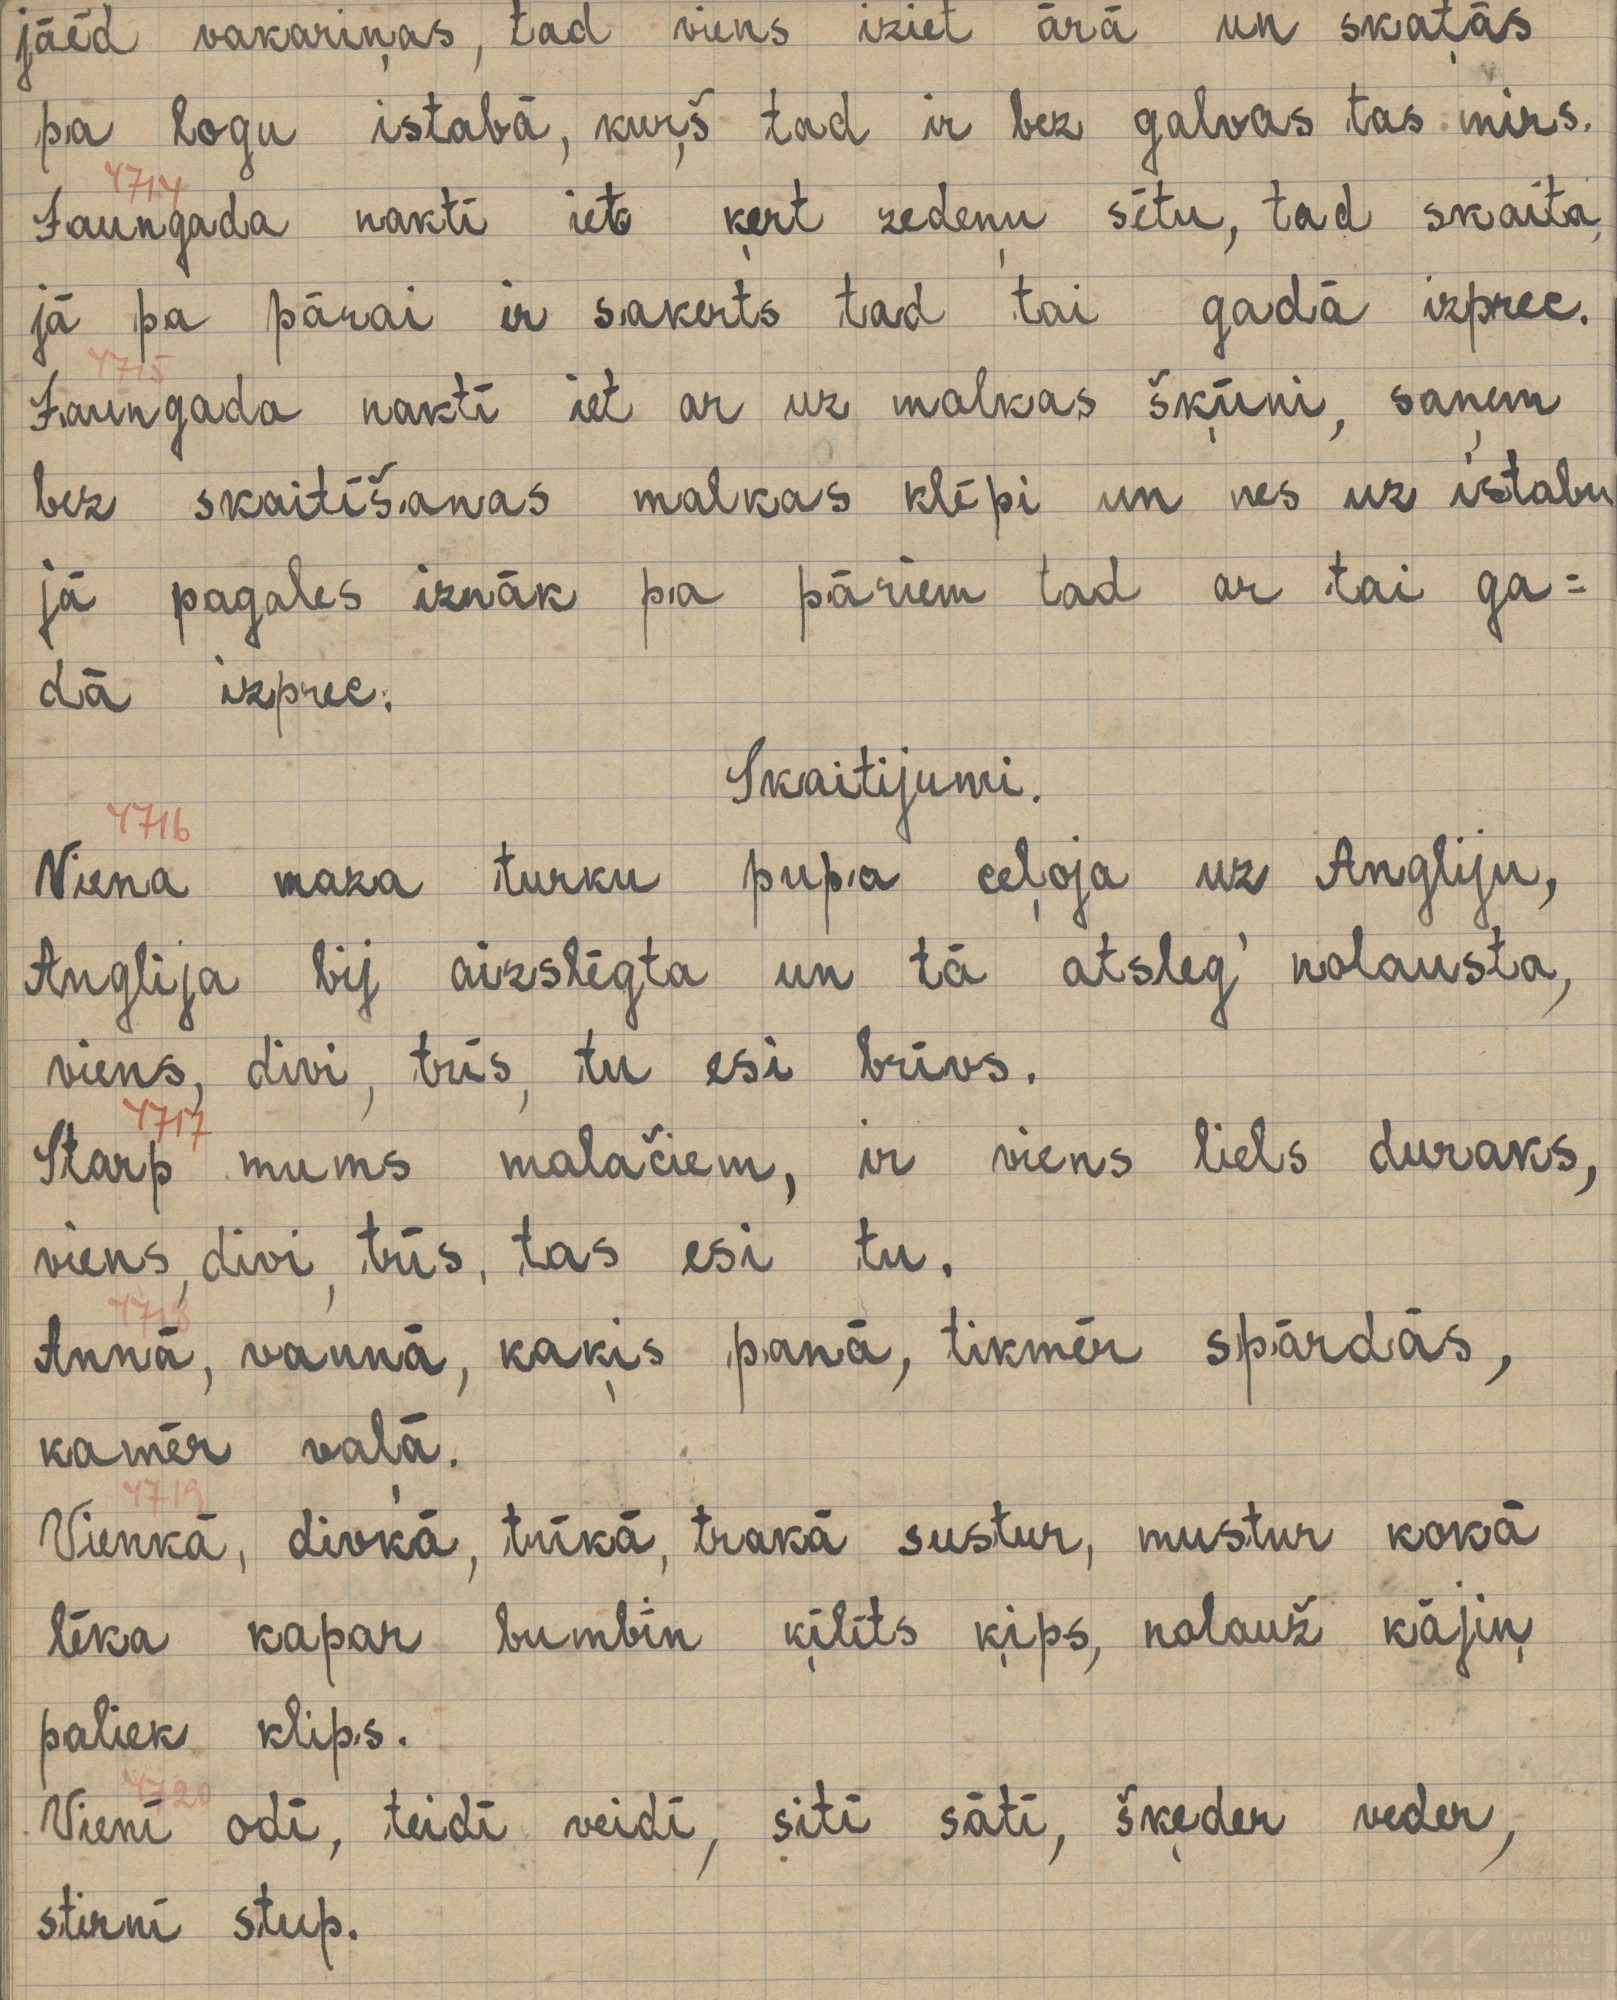 jāēd vakariņas, tad viens iziet ārā un skatās
pa logu istabā, kuŗš tad ir bez galvas tas mirs.
4714
Jaungada naktī iet ķert zedeņu sētu, tad skaita,
jā pa pārai ir sakerts tad tai gadā izprec.
4715
Jaungada naktī iet ar uz malkas šķūni, saņem
bez skaitīšanas malkas klēpi un nes uz istabu
jā pagales iznāk pa pāriem tad ar tai ga=
dā izprec.
Skaitijumi.
4716
Viena maza turku pupa ceļoja uz Angliju,
Anglija bij aizslēgta un tā atsleg' nolausta,
viens, divi, trīs, tu esi brīvs.
4717
Starp mums malačiem, ir viens liels duraks,
viens, divi, trīs, tas esi tu.
4718
Annā, vannā, kaķis panā, tikmēr spārdās,
kamēr vaļā.
4719
Vienkā, divkā, trīkā, trakā sustur, mustur kokā
lēka kapar bumbīn ķilīts ķips, nolauž kājiņ
paliek klips.
4720
Vienī odī, teidī veidī, sitī sātī, šķeder veder,
stirnī stup.
LATVIEŠU
FOLKLORAS